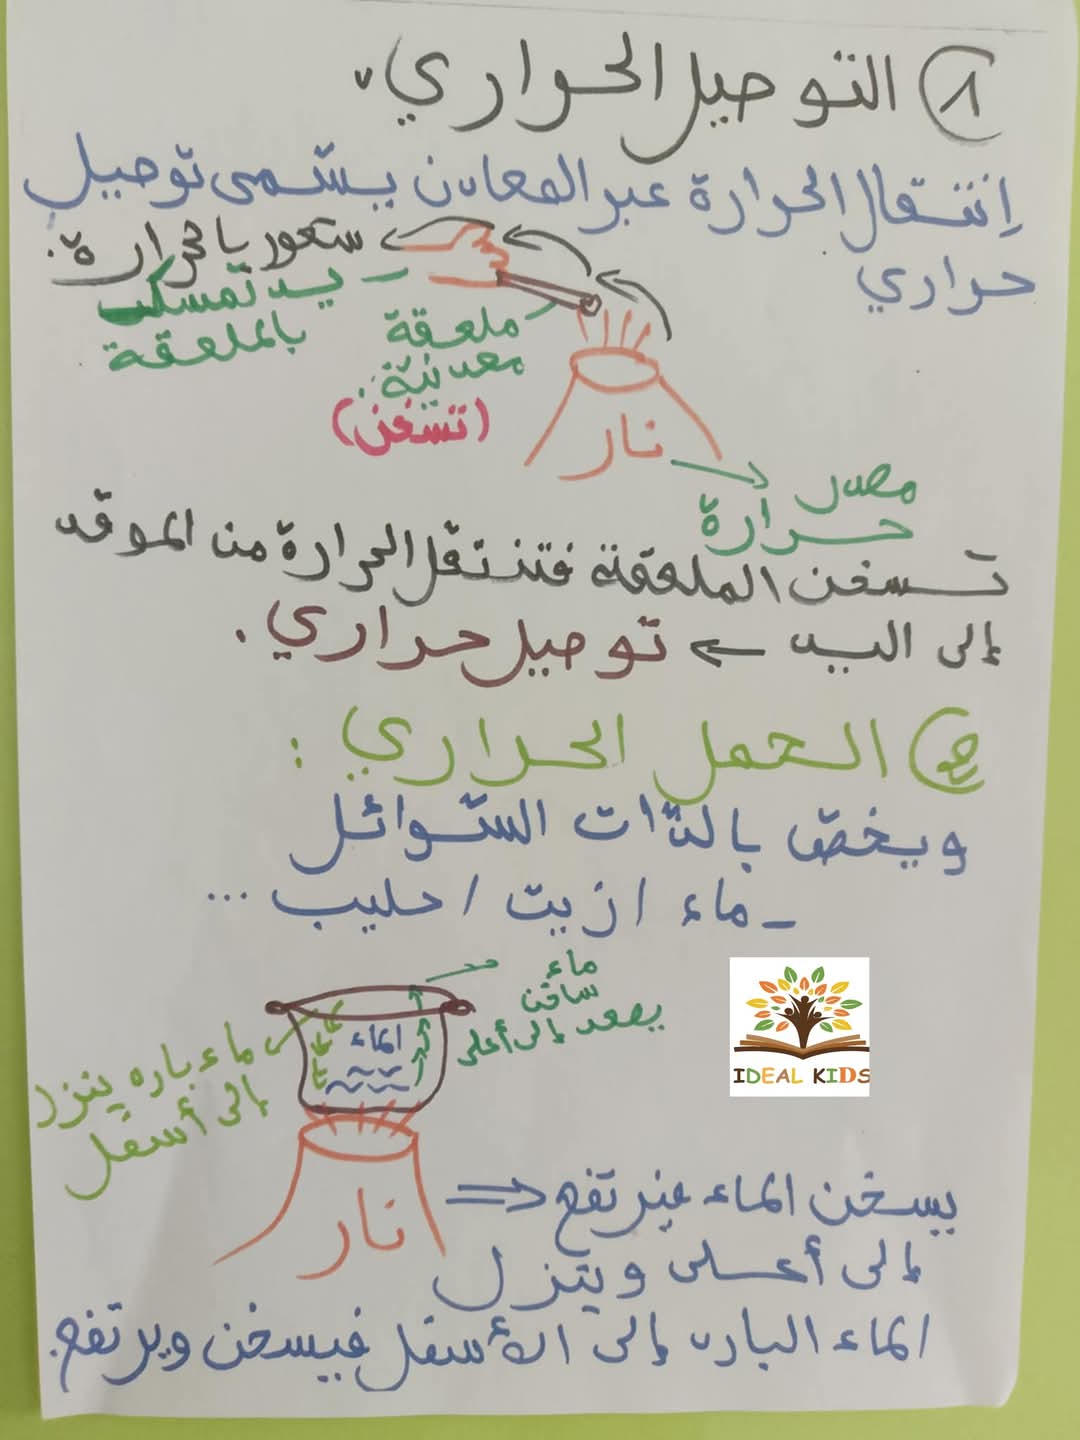 1 التوصيل الحراري
إنتقال الحرارة عبر المعادن يسمى توصيل
حراري
شعور بالحرارة.
يد تمسك
بالملعقة
ملعقة
معدنية.
(تسخن)
نار
مصدر
حرارة
تسخن الملعقة فتنتقل الحرارة من الموقد
إلى اليد ← توصيل حراري.
الحمل الحراري :
ويخص بالذات السوائل
- ماء / زيت / حليب ...
ماء
ساخن
يصعد إلى أعلى
الماء
ماء بارد ينزل
إلى أسفل
IDEAL KIDS
نار
يسخن الماء فيرتفع ⇐
إلى أعلى وينزل
الماء البارد إلى الأسفل فيسخن ويرتفع.